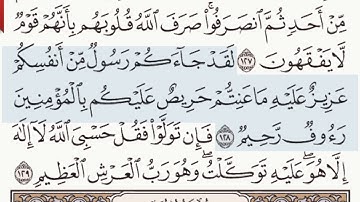 مِّنْ أَحَدٍ ثُمَّ انصَرَفُوا۟ ۚ صَرَفَ اللَّهُ قُلُوبَهُم بِأَنَّهُمْ قَوْمٌ
لَّا يَفْقَهُونَ ١٢٧ لَقَدْ جَاءَكُمْ رَسُولٌ مِّنْ أَنفُسِكُمْ
عَزِيزٌ عَلَيْهِ مَا عَنِتُّمْ حَرِيصٌ عَلَيْكُم بِالْمُؤْمِنِينَ
رَءُوفٌ رَّحِيمٌ ١٢٨ فَإِن تَوَلَّوْا۟ فَقُلْ حَسْبِيَ اللَّهُ لَا إِلَٰهَ
إِلَّا هُوَ ۖ عَلَيْهِ تَوَكَّلْتُ ۖ وَهُوَ رَبُّ الْعَرْشِ الْعَظِيمِ ١٢٩